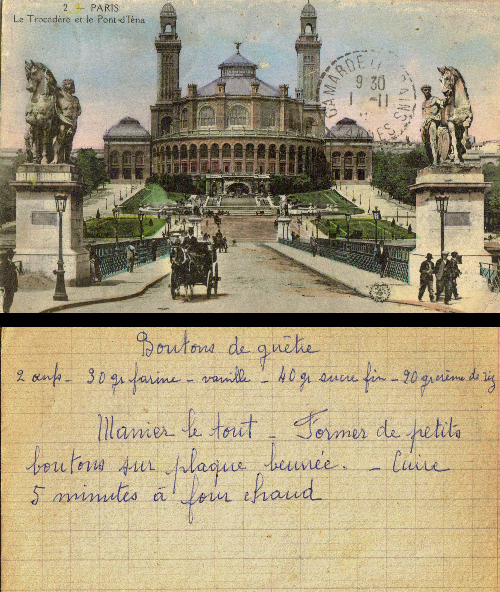 2 - PARIS
Le Trocadéro et le Pont d'Iéna
9 30
1 - 11
Boutons de guêtre
2 œufs - 30 gr farine - vanille - 40 gr sucre fin - 20 gr crème de riz
Manier le tout - Former de petits
boutons sur plaque beurrée. - Cuire
5 minutes à four chaud